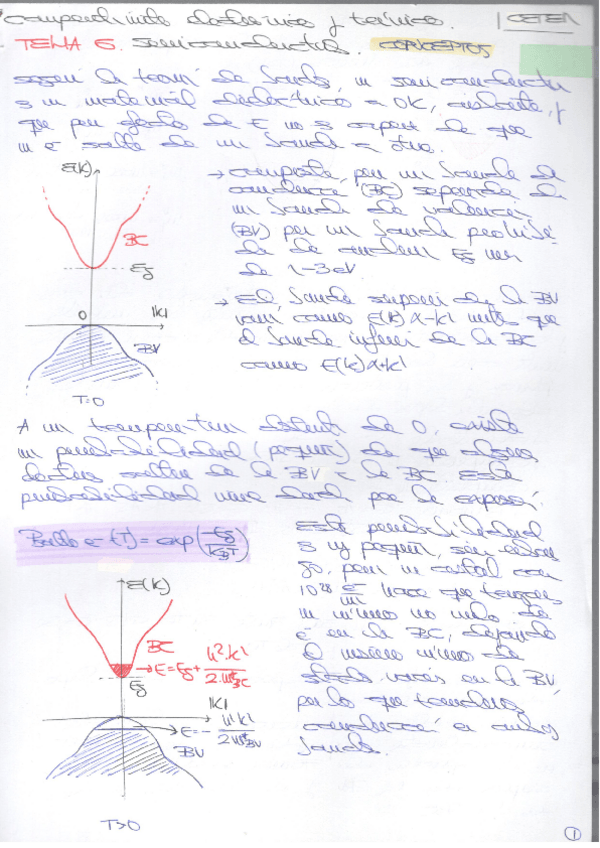 Comportamiento electrónico y térmico. | CETEM
TEMA 6. Semiconductores. CONCEPTOS
según la teoría de bandas, un semiconductor
es un material eléctrico a 0K, aislante, y
que por efecto de E no es capaz de que
un e⁻ salte de una banda a otra.
E(k)
→ compuesto, por una banda de
conducción (BC) separada de
una banda de valencia
(BV) por una banda prohibi-
da de anchura Eg
de 1-3eV
BC
Eg
0
|k|
BV
T=0
→ El borde superior de la BV
varía como E(k) α -k² mientras que
el borde inferior de la BC
como E(k) α +k²
A una temperatura distinta de 0, existe
una probabilidad (pequeña) de que algunos
electrones salten de la BV a la BC. Esta
probabilidad viene dada por la expresión:
e⁻ (T) = exp(-Eg/KBT)
Esta probabilidad
es muy pequeña, sin embar-
go, para un cristal con
10²⁸ e⁻/m³ hace que tengamos
un número no nulo de
e⁻ en la BC, dejando
el mismo número de
estados vacíos en la BV,
por lo que tendremos
conducción en ambas
bandas.
E(k)
BC
→ E = Eg + ħ²k²/2m*BC
Eg
|k|
→ E = - ħ²k²/2m*BV
BV
T>0
1